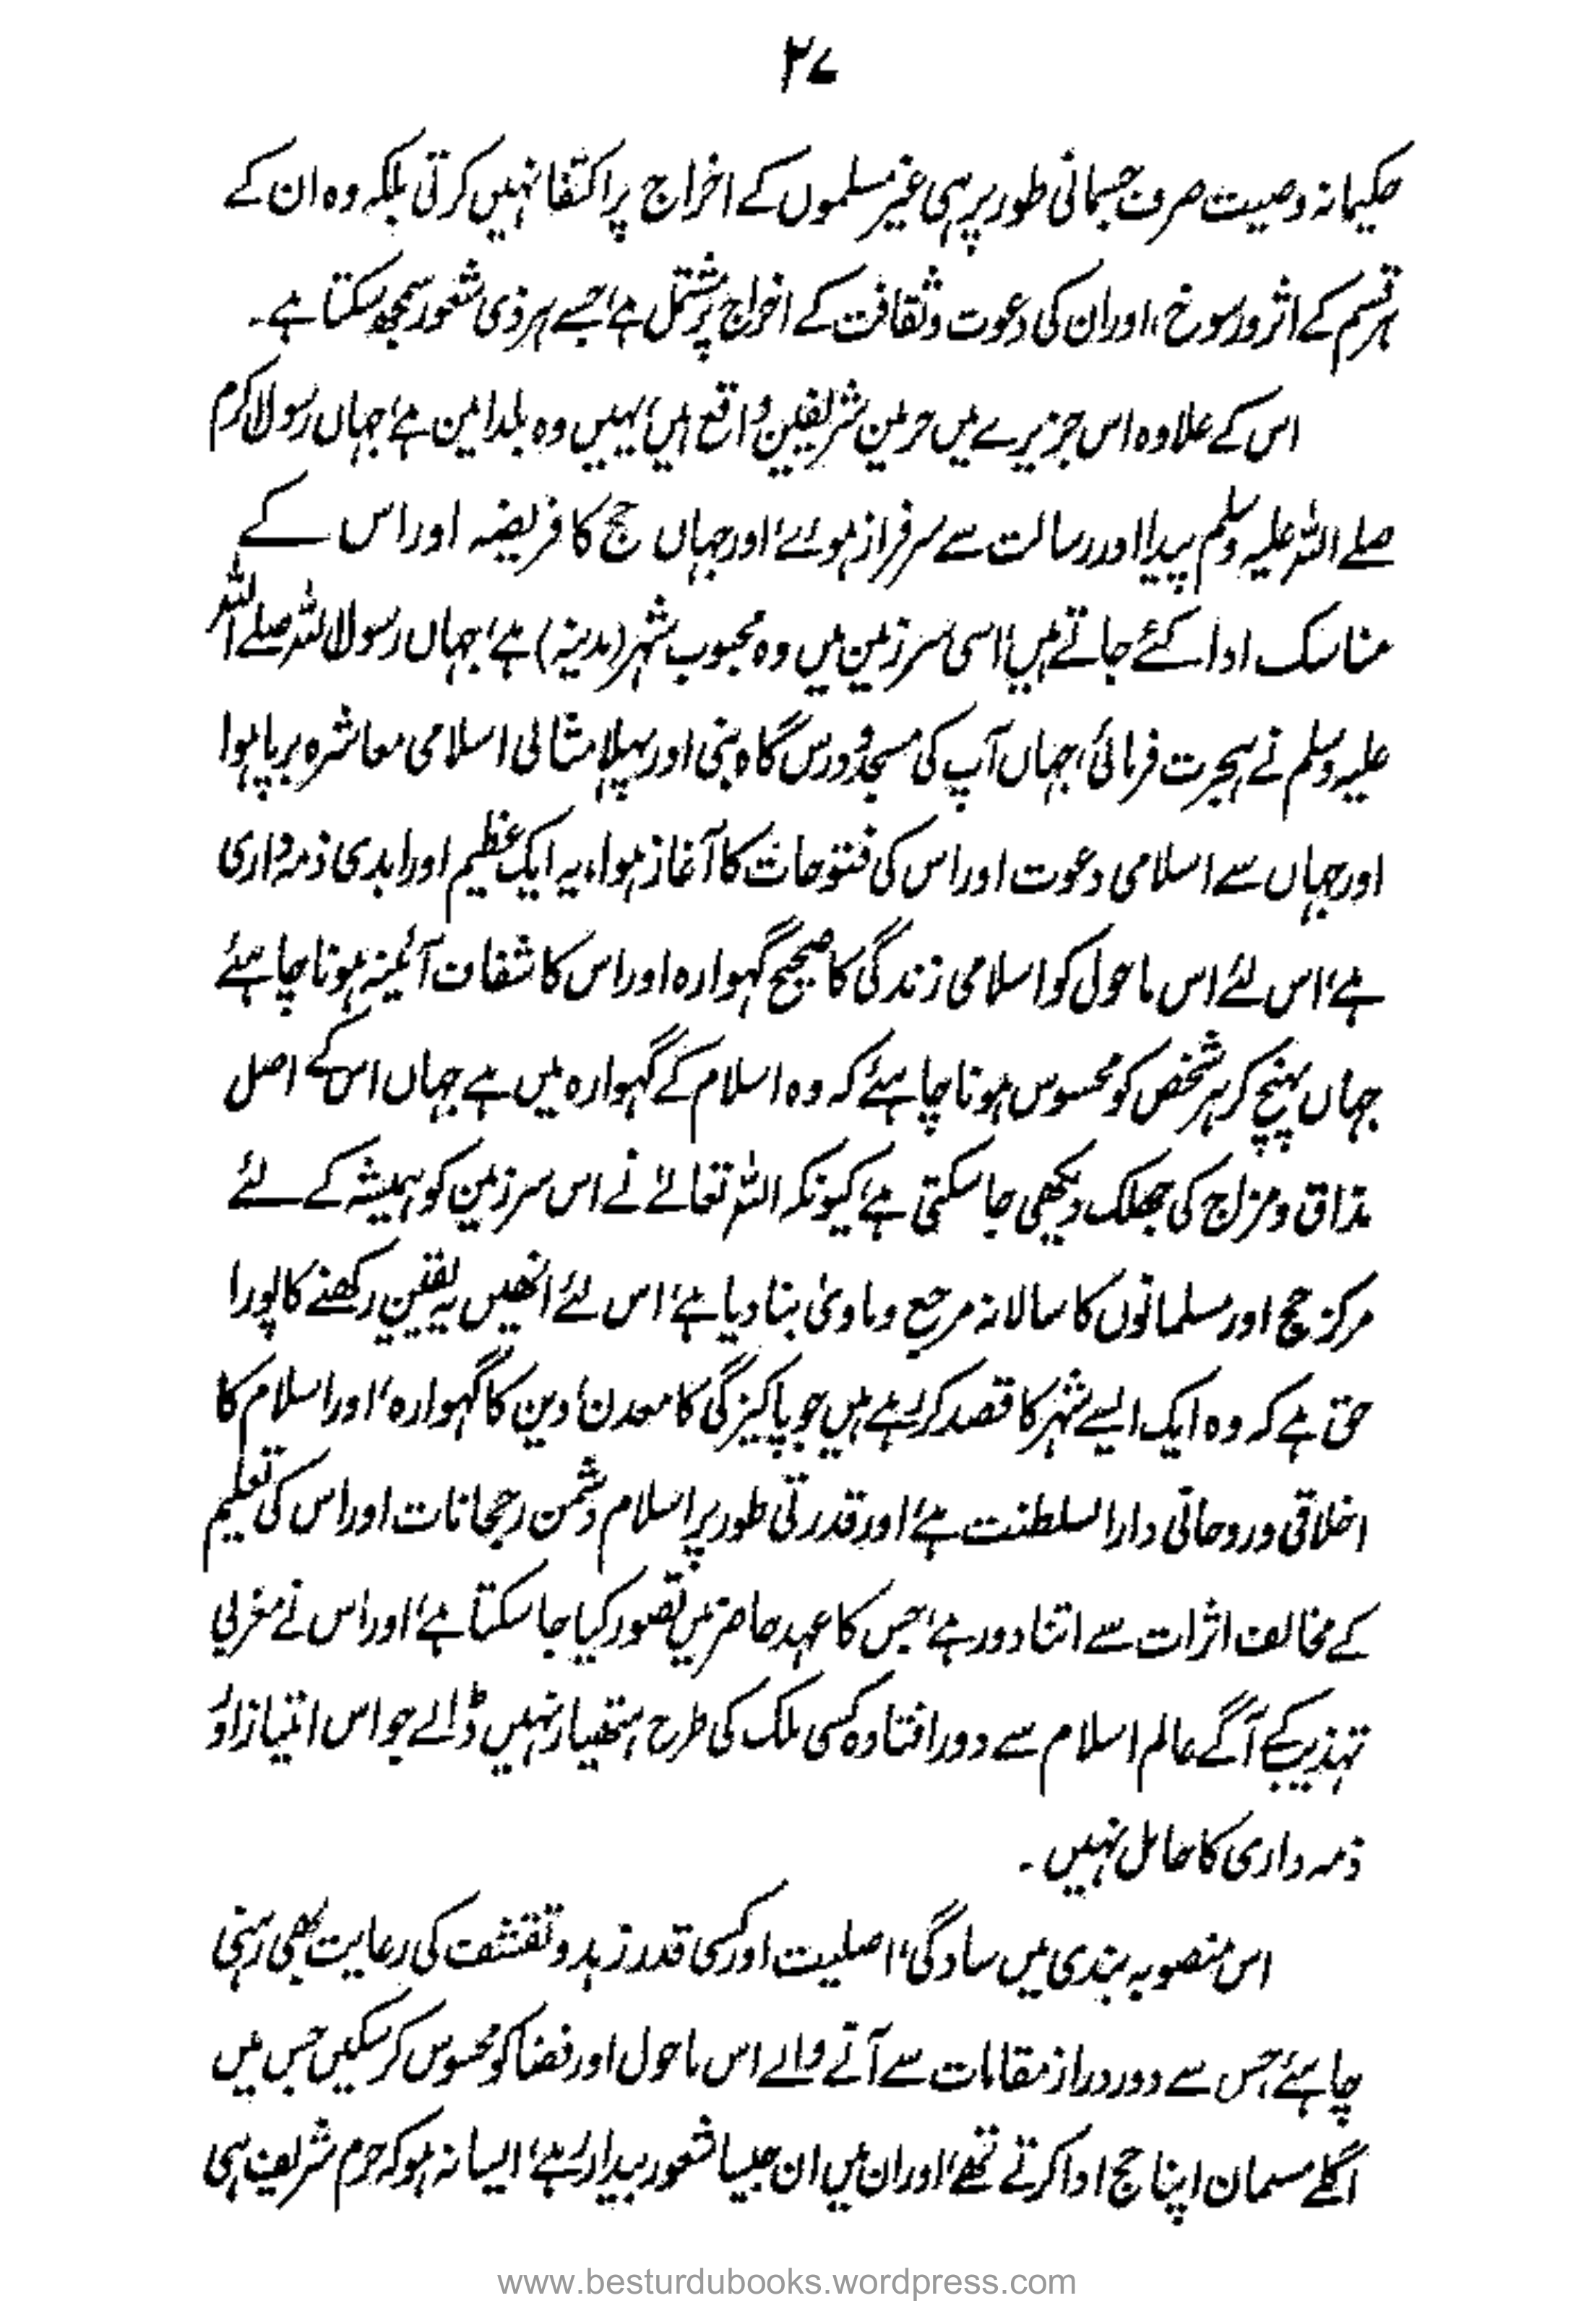 ۲۷
حکیمانہ وصیت صرف جسمانی طور پر ہی غیر مسلموں کے اخراج پر اکتفا نہیں کرتی بلکہ وہ ان کے
ہر قسم کے اثر و رسوخ، اور ان کی دعوت و ثقافت کے اخراج پر مشتمل ہے، جسے ہر ذی شعور سمجھ سکتا ہے۔
اس کے علاوہ اس جزیرے میں حرمین شریفین واقع ہیں، یہیں وہ بلد امین ہے، جہاں رسول اکرم
صلے اللہ علیہ وسلم پیدا اور رسالت سے سرفراز ہوئے، اور جہاں حج کا فریضہ اور اس کے
مناسک ادا کئے جاتے ہیں، اسی سرزمین میں وہ محبوب شہر (مدینہ) ہے، جہاں رسول اللہ صلے اللہ
علیہ وسلم نے ہجرت فرمائی، جہاں آپ کی مسجد و درس گاہ بنی اور پہلا مثالی اسلامی معاشرہ برپا ہوا
اور جہاں سے اسلامی دعوت اور اس کی فتوحات کا آغاز ہوا، یہ ایک عظیم اور ابدی ذمہ داری
ہے، اس لئے اس ماحول کو اسلامی زندگی کا صحیح گہوارہ اور اس کا شفاف آئینہ ہونا چاہئے
جہاں پہنچ کر ہر شخص کو محسوس ہونا چاہئے کہ وہ اسلام کے گہوارہ میں ہے جہاں اس کے اصل
مذاق و مزاج کی جھلک دیکھی جا سکتی ہے، کیونکہ اللہ تعالےٰ نے اس سرزمین کو ہمیشہ کے لئے
مرکز حج اور مسلمانوں کا سالانہ مرجع و ماویٰ بنا دیا ہے، اس لئے انھیں یہ یقین رکھنے کا پورا
حق ہے کہ وہ ایک ایسے شہر کا قصد کر رہے ہیں جو پاکیزگی کا معدن، دین کا گہوارہ، اور اسلام کا
اخلاقی و روحانی دارالسلطنت ہے، اور قدرتی طور پر اسلام دشمن رجحانات اور اس کی تعلیم
کے مخالف اثرات سے اتنا دور ہے، جس کا عہد حاضر میں تصور کیا جا سکتا ہے، اور اس نے مغربی
تہذیب کے آگے عالم اسلام سے دور افتادہ کسی ملک کی طرح ہتھیار نہیں ڈالے جو اس امتیاز اور
ذمہ داری کا حامل نہیں۔
اس منصوبہ بندی میں سادگی، اصلیت اور کسی قدر زہد و تقشف کی رعایت بھی رہنی
چاہئے، جس سے دور دراز مقامات سے آنے والے اس ماحول اور فضا کو محسوس کر سکیں جس میں
اگلے مسلمان اپنا حج ادا کرتے تھے، اور ان میں ان جیسا شعور بیدار رہے، ایسا نہ ہو کہ حرم شریف ہی
www.besturdubooks.wordpress.com